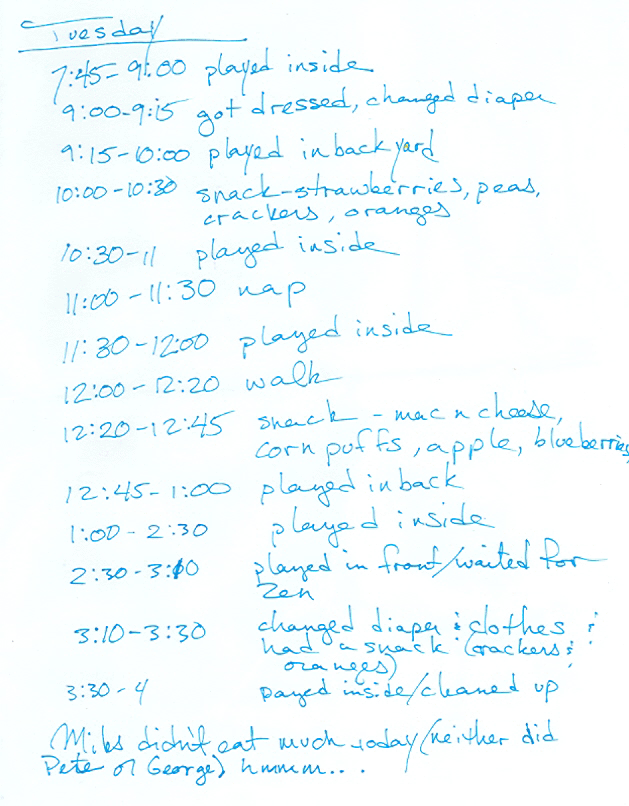 Tuesday
7:45-9:00 played inside
9:00-9:15 got dressed, changed diaper
9:15-10:00 played in back yard
10:00-10:30 snack-strawberries, peas,
crackers, oranges
10:30-11 played inside
11:00-11:30 nap
11:30-12:00 played inside
12:00-12:20 walk
12:20-12:45 snack - mac n cheese,
corn puffs, apple, blueberries
12:45-1:00 played in back
1:00-2:30 played inside
2:30-3:10 played in front/waited for
Zen
3:10-3:30 changed diaper & clothes &
had a snack (crackers &
oranges)
3:30-4 payed inside/cleaned up
Miles didn't eat much today (neither did
Pete or George) hmmm...